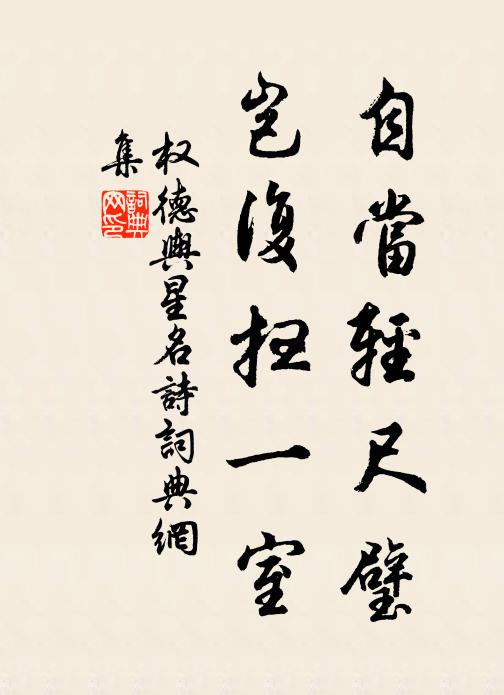 自當輕尺璧
豈復扭一室
权德輿星名詩詞典網
集
詞典網印